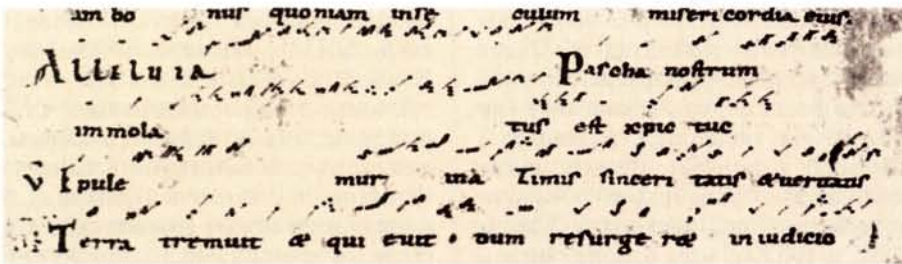 am bo nus quoniam inse culum misericordia eius.
ALLELUIA Pascha nostrum
immola tus est xpic tuc
V Epule mur inà Zimis sinceri tatis & ueritatis
Terra tremuit & qui euit . dum resurge r& in iudicio